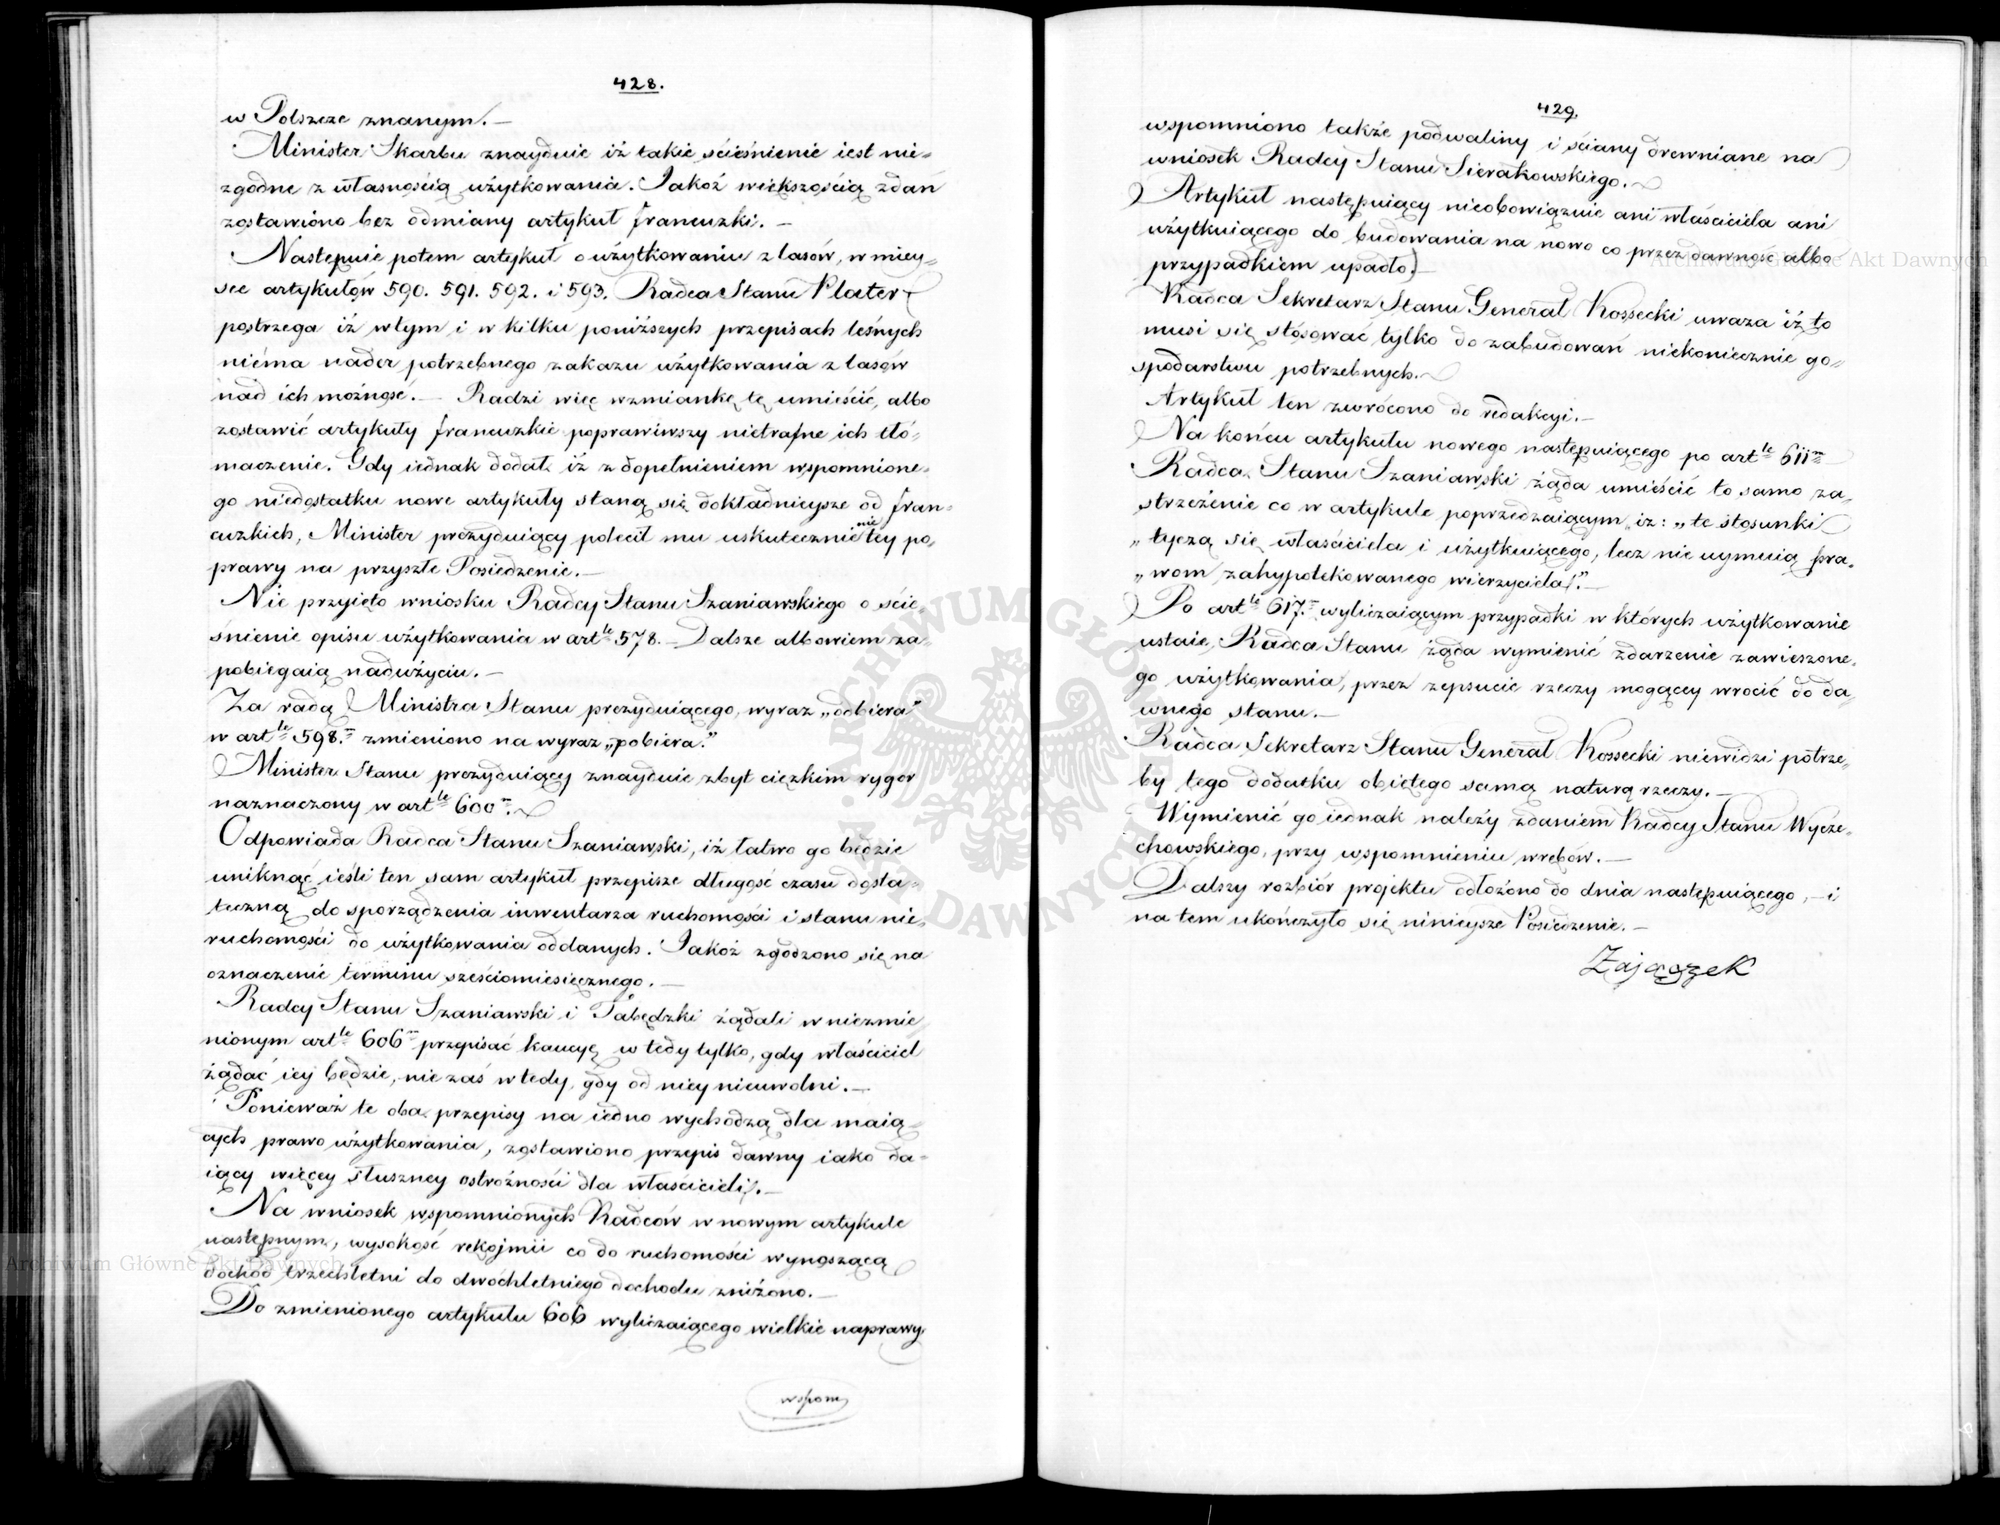 428.
w Polszcze znanym. —
Minister Skarbu znayduie iż takie ścieśnienie iest nie-
zgodne z własnością użytkowania. Jakoż większością zdań
zostawiono bez odmiany artykuł francuzki. —
Następuie potem artykuł o użytkowaniu z lasów, w miey-
sce artykułów 590. 591. 592. i 593. Radca Stanu Plater
postrzega iż w tym i w kilku poniższych przepisach leśnych
niéma nader potrzebnego zakazu użytkowania z lasów
nad ich możność. — Radzi więc wzmiankę tę umieścić, albo
zostawić artykuły francuzkie poprawiwszy nietrafne ich tłó-
maczenie. Gdy iednak dodał iż z dopełnieniem wspomnione-
go niedostatku nowe artykuły staną się dokładnieysze od fran-
cuzkich, Minister prezyduiący polecił mu uskutecznienie tey po-
prawy na przyszłe Posiedzenie. —
Nie przyięto wniosku Radcy Stanu Szaniawskiego o ście-
śnienie opisu użytkowania w artle 578. — Dalsze albowiem za-
pobiegaią nadużyciu. —
Za radą Ministra Stanu prezyduiącego, wyraz „odbiera”
w artle 598.m zmieniono na wyraz „pobiera.”
Minister Stanu prezyduiący znayduie zbyt ciężkim rygor
naznaczony w artle 600m. —
Odpowiada Radca Stanu Szaniawski, iż łatwo go będzie
uniknąć ieśli ten sam artykuł przepisze długość czasu dosta-
teczną do sporządzenia inwentarza ruchomości i stanu nie-
ruchomości do użytkowania oddanych. Jakoż zgodzono się na
oznaczenie terminu sześciomiesięcznego. —
Radcy Stanu Szaniawski i Tabędzki żądali w niezmie-
nionym artle 606m przepisać kaucyę w tedy tylko, gdy właściciel
żądać iey będzie, nie zaś w tedy, gdy od niey nieuwolni. —
Ponieważ te oba przepisy na iedno wychodzą dla maią-
cych prawo użytkowania, zostawiono przepis dawny iako da-
iący więcey słuszney ostrożności dla właścicieli. —
Na wniosek wspomnionych Radców w nowym artykule
następnym, wysokość rękojmii co do ruchomości wynoszącą
dochód trzechletni do dwóchletniego dochodu zniżono. —
Do zmienionego artykułu 606 wyliczaiącego wielkie naprawy
wspom
429.
wspomniono także podwaliny i ściany drewniane na
wniosek Radcy Stanu Sierakowskiego. —
Artykuł następuiący nieobowiązuie ani właściciela ani
użytkuiącego do budowania na nowo co przez dawność albo
przypadkiem upadło. —
Radca Sekretarz Stanu Generał Kossecki uważa iż to
musi się stósować tylko do zabudowań niekoniecznie go-
spodarstwu potrzebnych. —
Artykuł ten zwrócono do redakcyi. —
Na końcu artykułu nowego następuiącego po artle 611m
Radca Stanu Szaniawski żąda umieścić to samo za-
strzeżenie co w artykule poprzedzaiącym, iż: „te stosunki
„tyczą się właściciela i użytkuiącego, lecz nie uymuią pra-
„wom zahypotekowanego wierzyciela.” —
Po artle 617.m wyliczaiącym przypadki w których użytkowanie
ustaie, Radca Stanu żąda wymienić zdarzenie zawieszone-
go użytkowania, przez zepsucie rzeczy mogącey wrócić do da-
wnego stanu. —
Radca Sekretarz Stanu Generał Kossecki niewidzi potrze-
by tego dodatku obiętego samą naturą rzeczy. —
Wymienić go iednak należy zdaniem Radcy Stanu Wycze-
chowskiego, przy wspomnieniu wrębów. —
Dalszy rozbiór projektu odłożono do dnia następuiącego, — i
na tem ukończyło się ninieysze Posiedzenie. —
Zajączek
Archiwum Główne Akt Dawnych
Archiwum Główne Akt Dawnych
ARCHIWUM GŁÓWNE AKT DAWNYCH